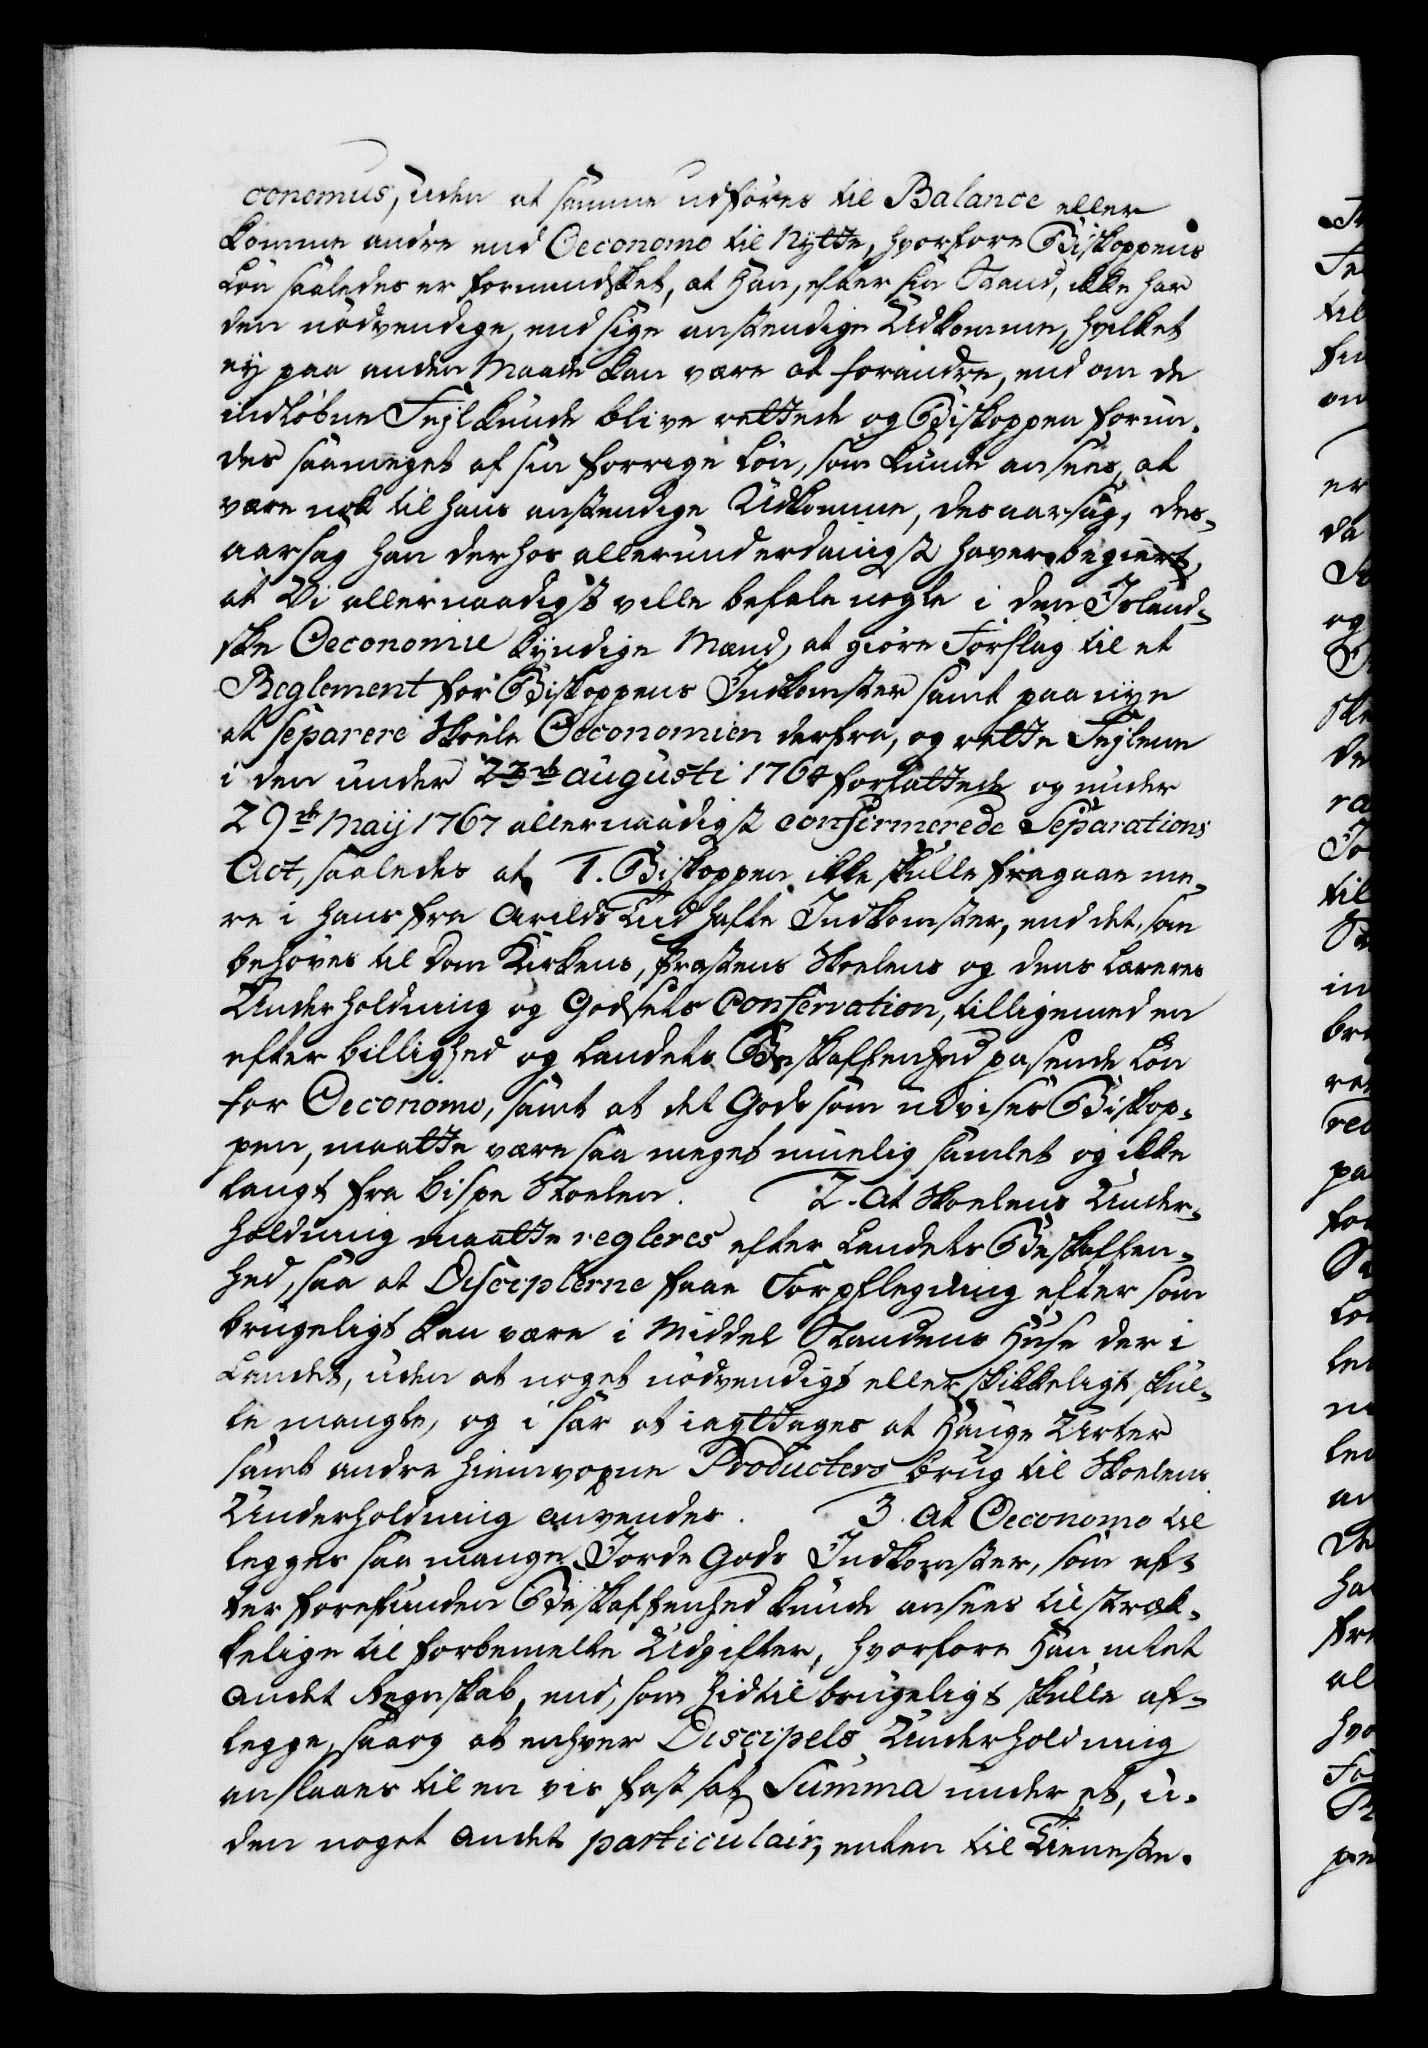 conomus, uden at samme udføres til Balance eller
komme andre end Oeconomo til Nytte, hvorfore Biskoppens
Løn saaledes er formindsket, at Han, efter sin Stand, ikke har
den nødvendige, end sige anstendige Udkomme, hvilket
ey paa anden Maade kan være at forandre, end om de
indløbne Feyl kunde blive rettede og Biskoppen forun-
des saameget af sin forrige Løn, som kunde ansees, at
være nok til hans anstendige Udkomme, desaarsag, des-
aarsag han derhos allerunderdanigst haver begiert,
at Vi allernaadigst ville befale nogle i den Island-
ske Oeconomie kyndige Mænd, at giøre Forslag til et
Reglement for Biskoppens Indkomster samt paa nye
at separere Skoele Oeconomien derfra, og rette Feylene
i den under 23de augusti 1764 forfattede og under
29de Maij 1767 allernaadigst confirmerede Separations
Act, saaledes at 1. Biskoppen ikke skulle fragaae me-
re i hans fra Arilds Tiid hafte Indkomster, end det, som
behøves til Dom Kirkens, Præstens Skoelens og dens Læreres
Underholdning og Godsets Conservation, tilligemed en
efter billighed og Landets Beskaffenhed pasende Løn
for Oeconomo, samt at det Gods som udvises Biskop-
pen, maatte være saa meget muelig samlet og ikke
langt fra Bispe Stoelen. 2. At Skoelens Under-
holdning maatte regleres efter Landets Beskaffen-
hed, saa at Disciplerne faae Forpflegning efter som
brugeligt kan være i Middel Standens Huse der i
Landet, uden at noget nødvendigt eller skikkeligt skul-
le mangle, og i sær at iagttages at Hauge Urter
samt andre hiemvoxne Producters brug til Skoelens
Underholdning anvendes. 3. At Oeconomo til
legges saa mange Jorde Gods Indkomster, som ef-
ter forefunden Beskaffenhed kunde ansees tilstræk-
kelige til forbemelte Udgifter, hvorfore Han intet
andet Regnskab, end, som hidtil brugeligt skulle af-
legge, saa og at enhver Discipels Underholdning
anslaaes til en vis fast sat Summa under et, u-
den noget andet particulair, enten til Tieneste-